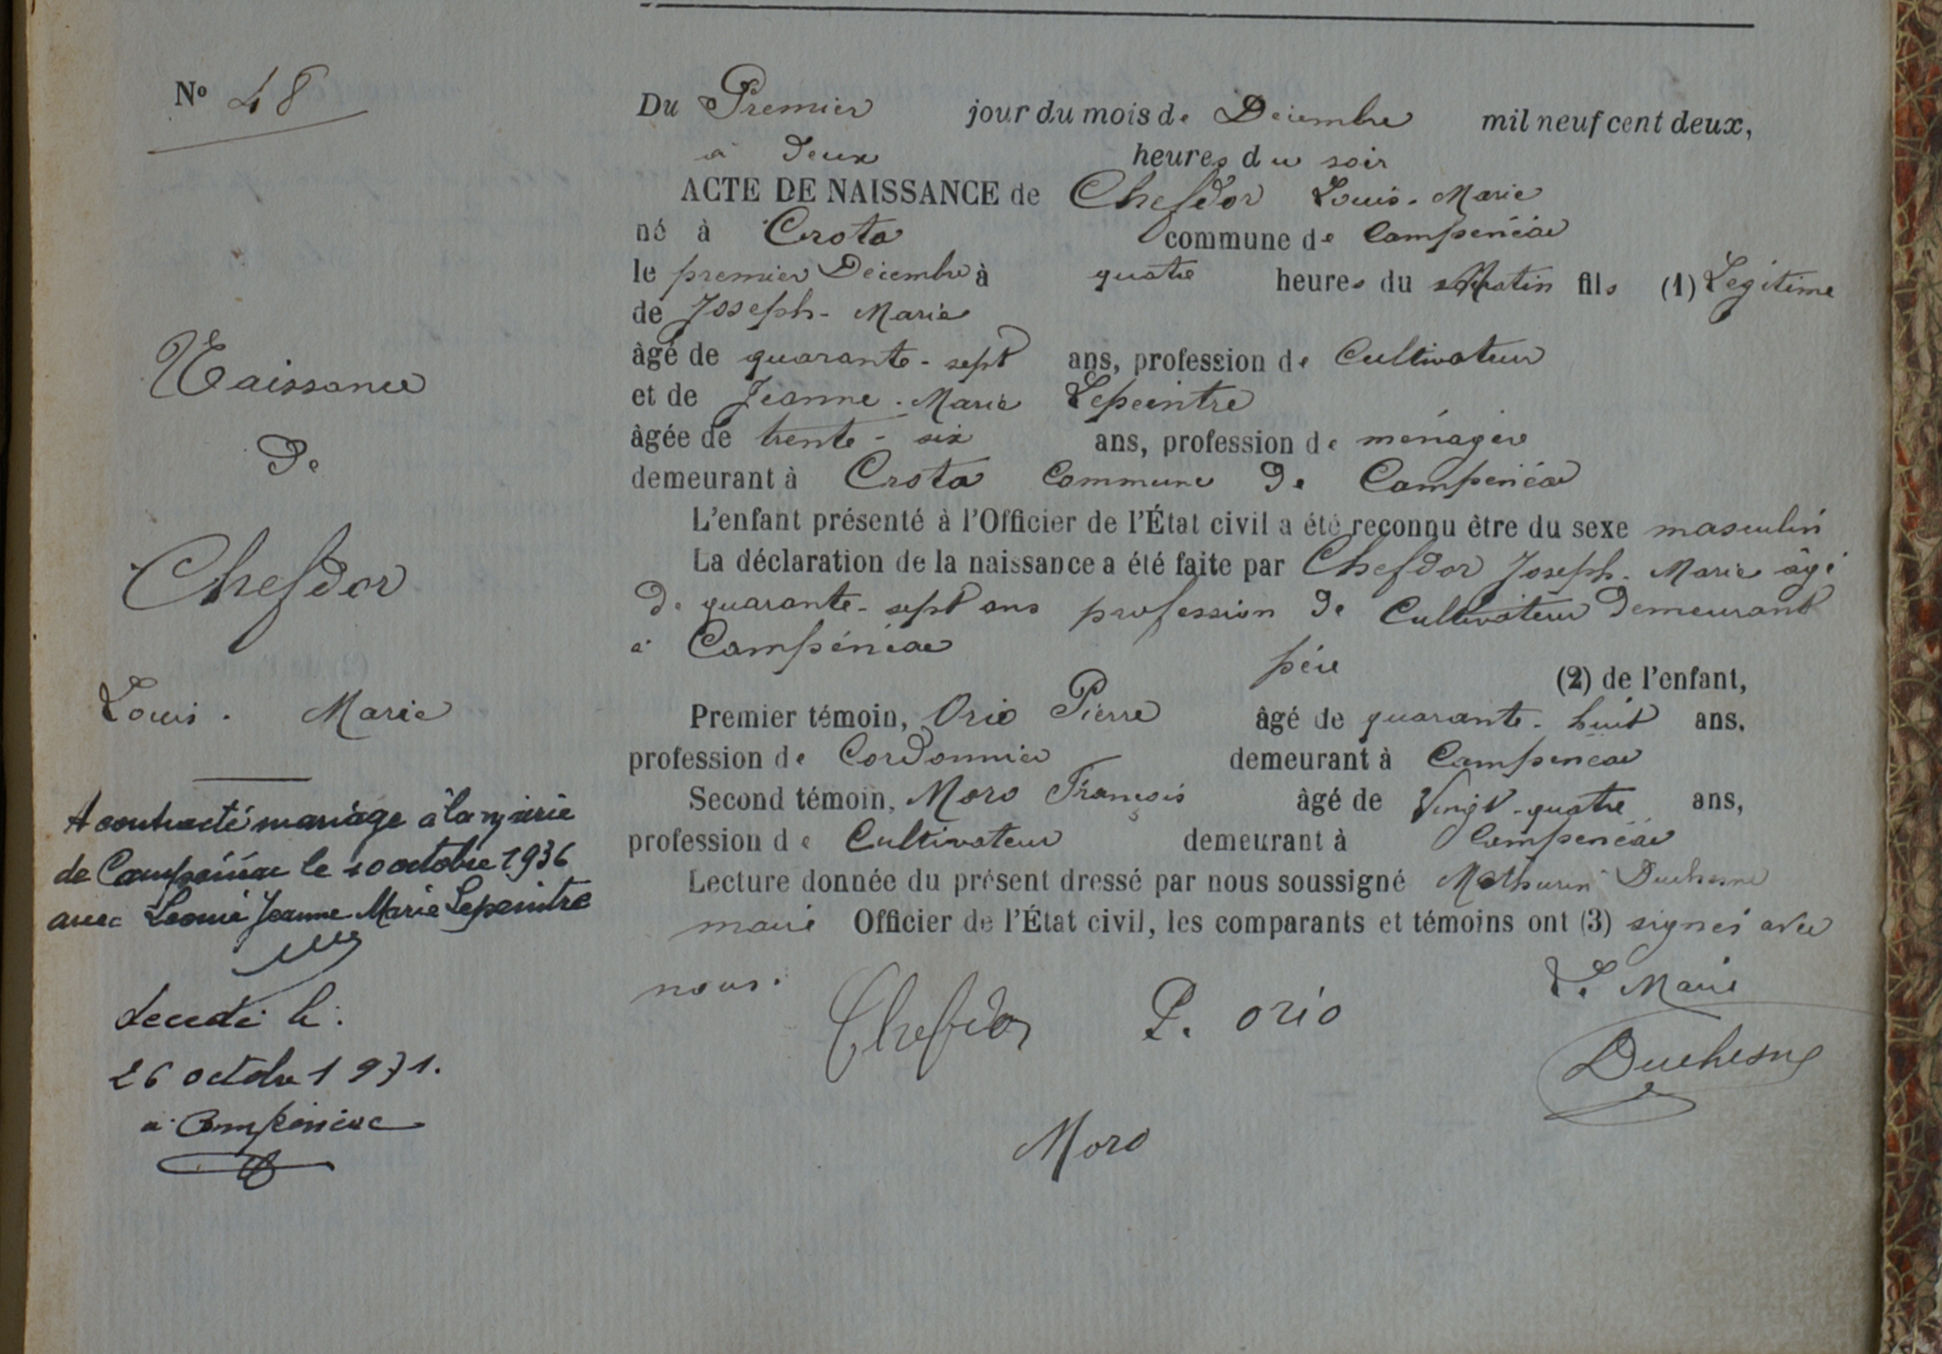 Nº 48
Naissance
De
Chefdor
Louis. Marie
A contracté mariage à la mairie
de Campénéac le 10 octobre 1936
avec Léonie Jeanne Marie Lepeintre
Décédé le
26 octobre 1971.
à Campénéac
Du Premier jour du mois de Décembre mil neuf cent deux,
à Deux heures du soir
ACTE DE NAISSANCE de Chefdor Louis-Marie
né à Crota commune de Campénéac
le premier Décembre à quatre heures du Matin fils (1) Légitime
de Joseph-Marie
âgé de quarante-sept ans, profession de Cultivateur
et de Jeanne-Marie Lepeintre
âgée de trente-six ans, profession de ménagère
demeurant à Crota Commune De Campénéac
L'enfant présenté à l'Officier de l'État civil a été reconnu être du sexe masculin
La déclaration de la naissance a été faite par Chefdor Joseph-Marie âgé
De quarante-sept ans profession De Cultivateur Demeurant
à Campénéac père (2) de l'enfant,
Premier témoin, Orio Pierre âgé de quarante-huit ans,
profession de Cordonnier demeurant à Campénéac
Second témoin, Moro François âgé de Vingt-quatre ans,
profession de Cultivateur demeurant à Campénéac
Lecture donnée du présent dressé par nous soussigné Mathurin Duchesne
maire Officier de l'État civil, les comparants et témoins ont (3) signés avec
nous.
Le Maire
Chefdor P. Orio
Duchesne
Moro